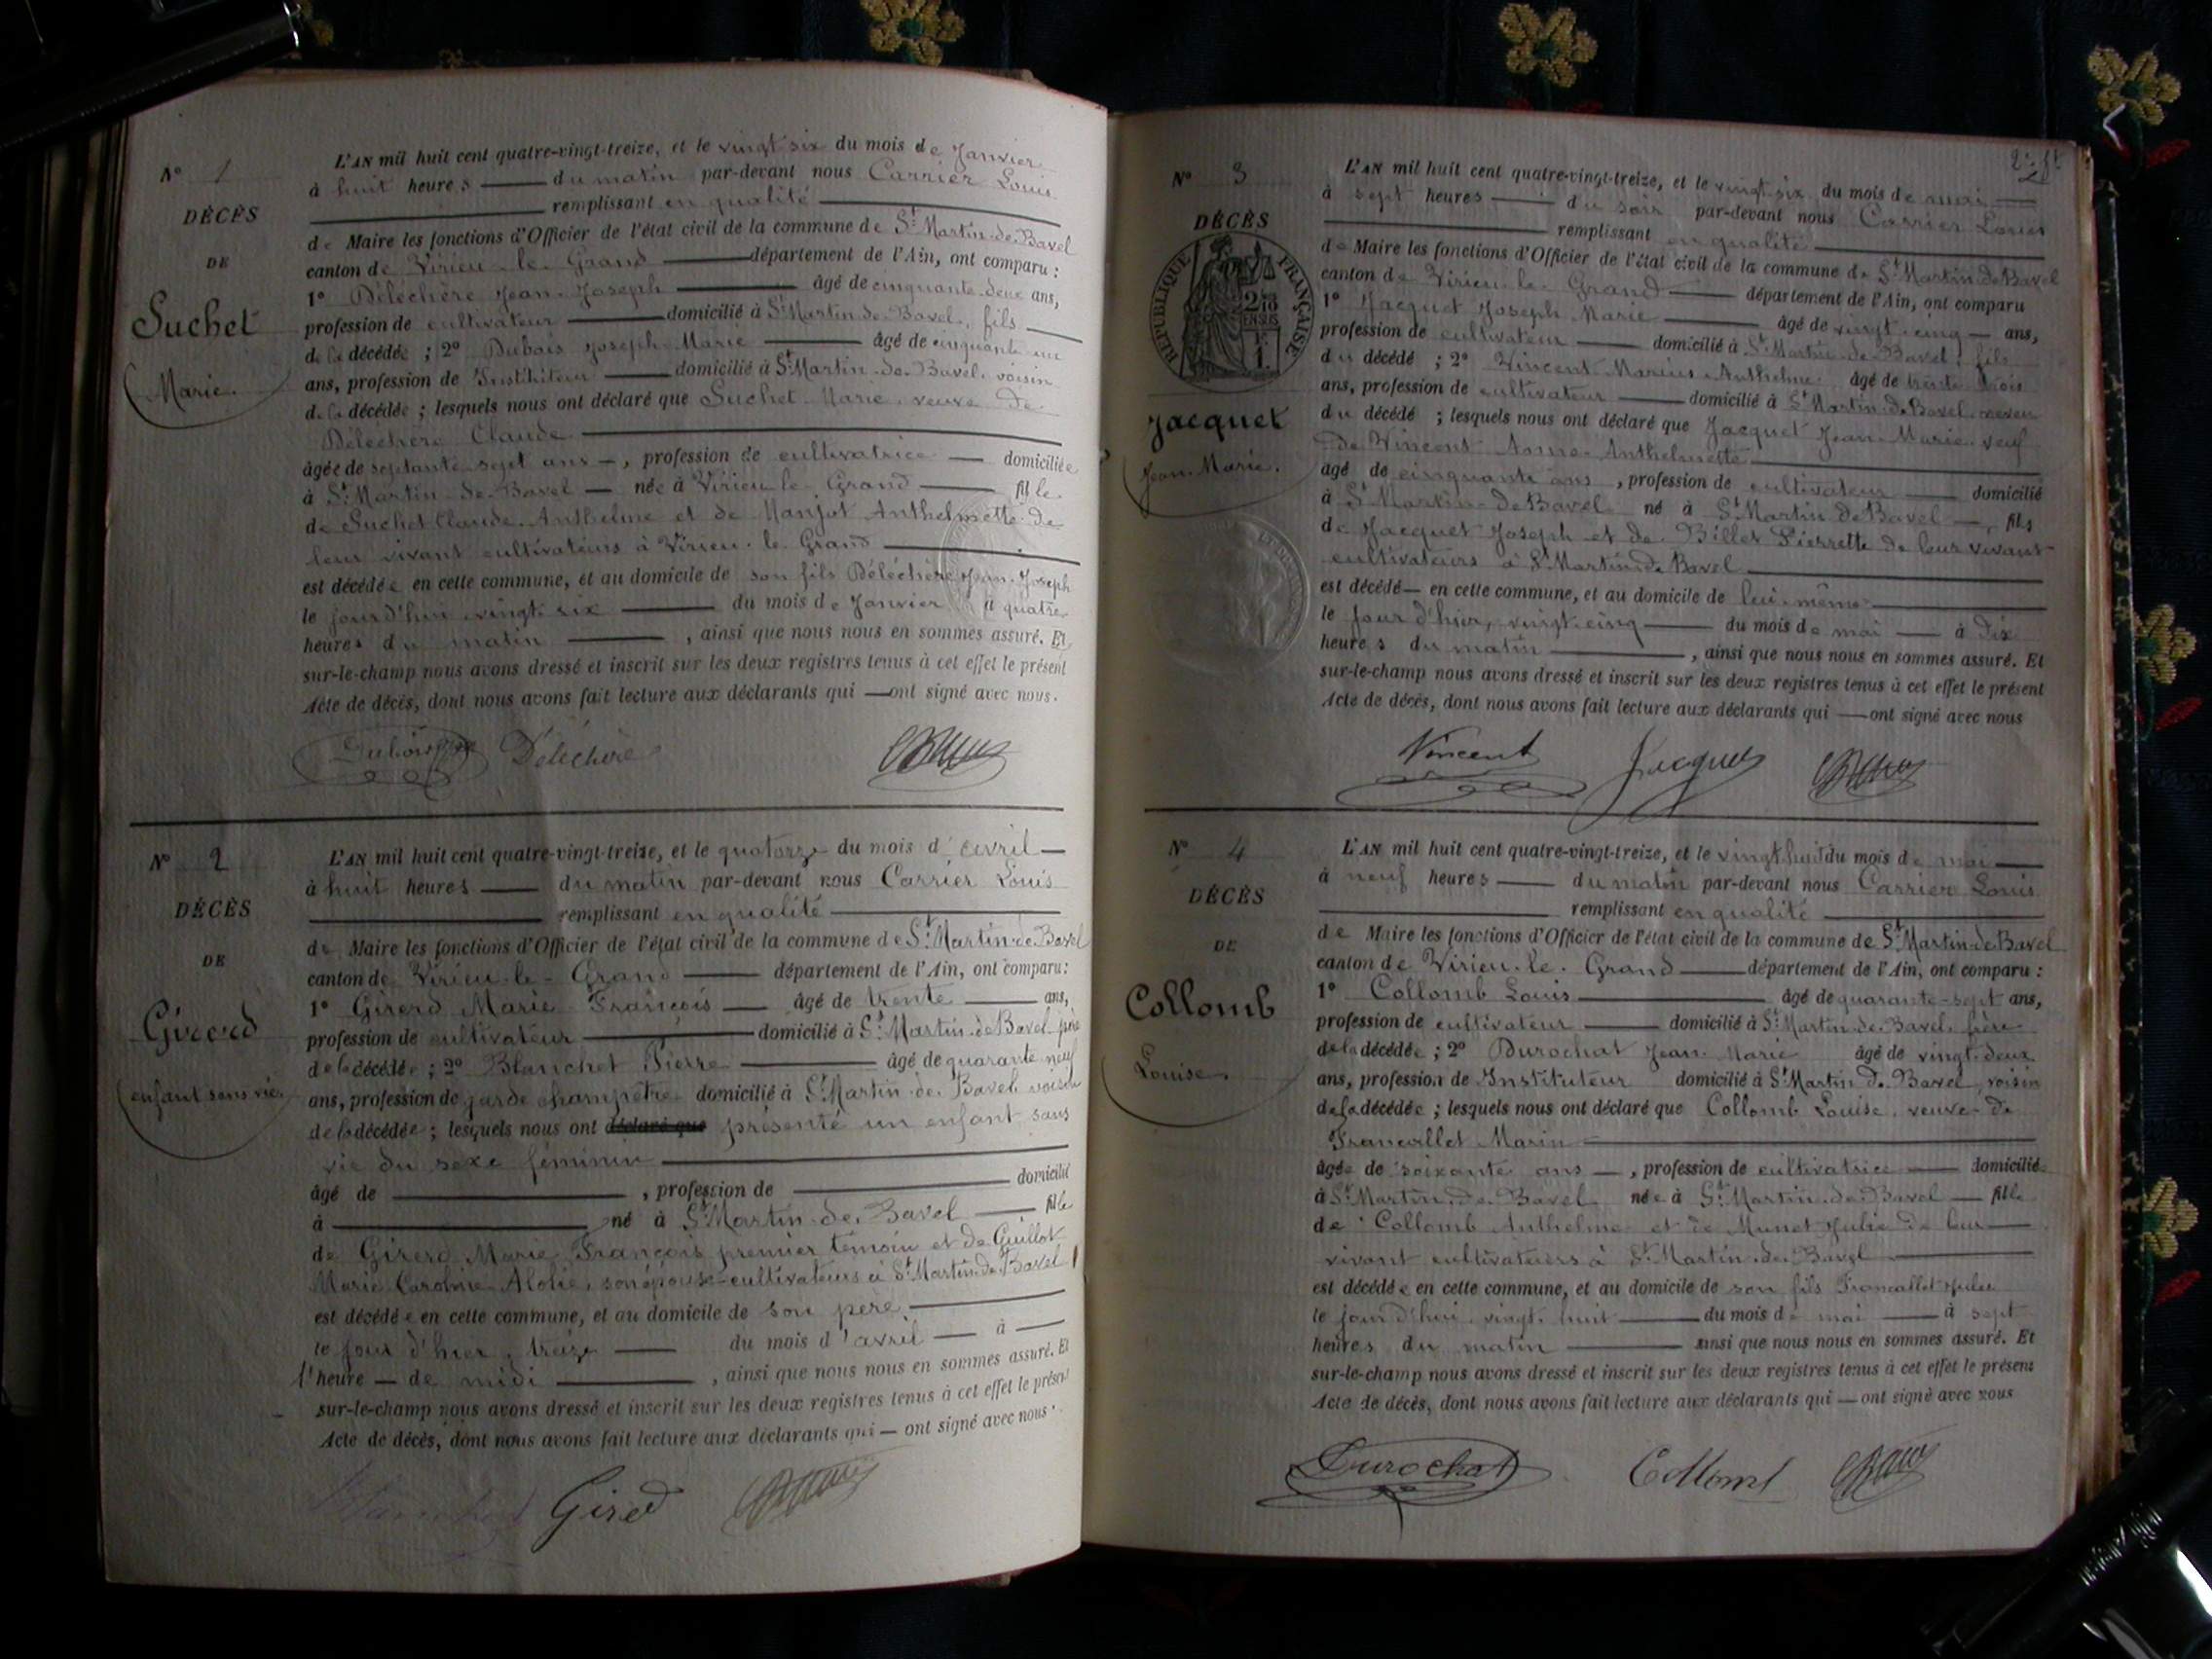 N° 1
DÉCÈS
DE
Suchet
Marie.
L'AN mil huit cent quatre-vingt-treize, et le vingt six du mois de Janvier
à huit heures — du matin par-devant nous Carrier Louis
remplissant en qualité
de Maire les fonctions d'Officier de l'état civil de la commune de St Martin-de-Bavel
canton de Virieu-le-Grand — département de l'Ain, ont comparu :
1° Déléchère Jean-Joseph — âgé de cinquante-deux ans,
profession de cultivateur — domicilié à St Martin-de-Bavel, fils
de la décédée ; 2° Dubois Joseph Marie — âgé de cinquante un
ans, profession de Instituteur — domicilié à St Martin-de-Bavel, voisin
de la décédée ; lesquels nous ont déclaré que Suchet Marie, veuve de
Déléchère Claude
âgée de septante-sept ans —, profession de cultivatrice — domiciliée
à St Martin-de-Bavel — née à Virieu-le-Grand — fille
de Suchet Claude-Anthelme et de Manjot Anthelmette de
leur vivant cultivateurs à Virieu-le-Grand
est décédée en cette commune, et au domicile de son fils Déléchère Jean-Joseph
le jourd'hui vingt-six — du mois de Janvier à quatre
heures du matin — , ainsi que nous nous en sommes assuré. Et
sur-le-champ nous avons dressé et inscrit sur les deux registres tenus à cet effet le présent
Acte de décès, dont nous avons fait lecture aux déclarants qui — ont signé avec nous.
Dubois Déléchère
N° 2
DÉCÈS
DE
Girerd
enfant sans vie.
L'AN mil huit cent quatre-vingt-treize, et le quatorze du mois d'avril —
à huit heures — du matin par-devant nous Carrier Louis
remplissant en qualité
de Maire les fonctions d'Officier de l'état civil de la commune de St Martin-de-Bavel
canton de Virieu-le-Grand — département de l'Ain, ont comparu :
1° Girerd Marie François — âgé de trente — ans,
profession de cultivateur — domicilié à St Martin-de-Bavel père
de la décédée ; 2° Blanchet Pierre — âgé de quarante neuf
ans, profession de garde champêtre domicilié à St Martin-de-Bavel voisin
de la décédée ; lesquels nous ont déclaré que présenté un enfant sans
vie du sexe féminin
âgé de — , profession de — domicilié
à — né à St Martin-de-Bavel — fille
de Girerd Marie François premier témoin et de Guillot
Marie Caroline son épouse cultivateurs à St Martin-de-Bavel
est décédée en cette commune, et au domicile de son père
le jour d'hier, treize — du mois d'avril — à —
l'heure — de midi — , ainsi que nous nous en sommes assuré. Et
sur-le-champ nous avons dressé et inscrit sur les deux registres tenus à cet effet le présent
Acte de décès, dont nous avons fait lecture aux déclarants qui — ont signé avec nous.
Blanchet Girerd
N° 3
DÉCÈS
RÉPUBLIQUE FRANÇAISE
Jacquet
Jean-Marie.
L'AN mil huit cent quatre-vingt-treize, et le vingt-six du mois de mai —
à sept heures — du soir par-devant nous Carrier Louis
remplissant en qualité
de Maire les fonctions d'Officier de l'état civil de la commune de St Martin-de-Bavel
canton de Virieu-le-Grand — département de l'Ain, ont comparu
1° Jacquet Joseph Marie — âgé de vingt-cinq — ans,
profession de cultivateur — domicilié à St Martin-de-Bavel, fils
du décédé ; 2° Vincent Marius Anthelme âgé de trente trois
ans, profession de cultivateur — domicilié à St Martin-de-Bavel neveu
du décédé ; lesquels nous ont déclaré que Jacquet Jean-Marie veuf
de Vincent Anthelmette
âgé de cinquante ans , profession de cultivateur — domicilié
à St Martin-de-Bavel né à St Martin-de-Bavel —, fils
de Jacquet Joseph et de Billet Pierrette de leur vivant
cultivateurs à St Martin-de-Bavel
est décédé — en cette commune, et au domicile de lui-même
le jour d'hier, vingt-cinq — du mois de mai — à dix
heures du matin — , ainsi que nous nous en sommes assuré. Et
sur-le-champ nous avons dressé et inscrit sur les deux registres tenus à cet effet le présent
Acte de décès, dont nous avons fait lecture aux déclarants qui — ont signé avec nous
Vincent Jacquet
N° 4
DÉCÈS
DE
Collomb
Louise.
L'AN mil huit cent quatre-vingt-treize, et le vingt huit du mois de mai —
à neuf heures — du matin par-devant nous Carrier Louis
remplissant en qualité
de Maire les fonctions d'Officier de l'état civil de la commune de St Martin-de-Bavel
canton de Virieu-le-Grand — département de l'Ain, ont comparu :
1° Collomb Louis — âgé de quarante-sept ans,
profession de cultivateur — domicilié à St Martin-de-Bavel, frère
de la décédée ; 2° Durochat Jean-Marie âgé de vingt-deux
ans, profession de Instituteur domicilié à St Martin-de-Bavel, voisin
de la décédée ; lesquels nous ont déclaré que Collomb Louise, veuve de
Francillet Marin
âgée de soixante ans —, profession de cultivatrice — domiciliée
à St Martin-de-Bavel née à St Martin-de-Bavel — fille
de Collomb Anthelme et de Munet Julie de leur
vivant cultivateurs à St Martin-de-Bavel
est décédée en cette commune, et au domicile de son fils Jules
le jourd'hui, vingt-huit — du mois de mai — à sept
heures du matin — ainsi que nous nous en sommes assuré. Et
sur-le-champ nous avons dressé et inscrit sur les deux registres tenus à cet effet le présent
Acte de décès, dont nous avons fait lecture aux déclarants qui — ont signé avec nous
Durochat Collomb